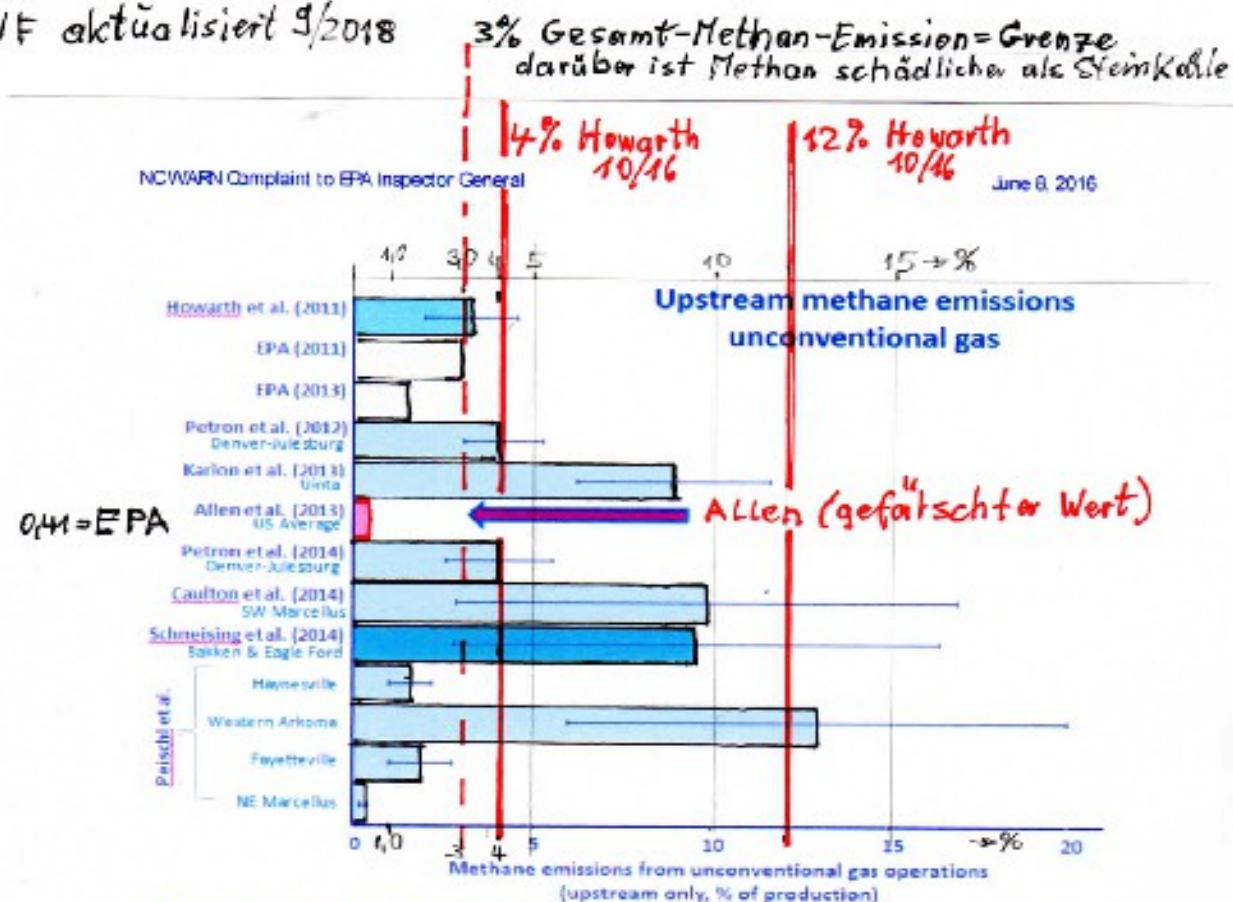 aktualisiert 9/2018
3% Gesamt-Methan-Emission=Grenze
darüber ist Methan schädlicher als Steinkohle
4% Howarth
10/16
12% Howarth
10/16
NCWARN Complaint to EPA Inspector General
June 8, 2016
1,0 3,0 4 5 10 15 → %
Upstream methane emissions
unconventional gas
Howarth et al. (2011)
EPA (2011)
EPA (2013)
Petron et al. (2012)
Denver-Julesburg
Karion et al. (2013)
Uinta
Allen et al. (2013)
US Average
0,41=EPA
ALLEN (gefälschter Wert)
Petron et al. (2014)
Denver-Julesburg
Caulton et al. (2014)
SW Marcellus
Schneising et al. (2014)
Bakken & Eagle Ford
Peischl et al.
Haynesville
Western Arkoma
Fayetteville
NE Marcellus
0 1,0 3 4 5 10 15 → % 20
Methane emissions from unconventional gas operations
(upstream only, % of production)